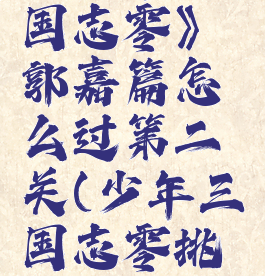 国志零》
郭嘉篇怎
么过第二
关(少年三
国志零挑